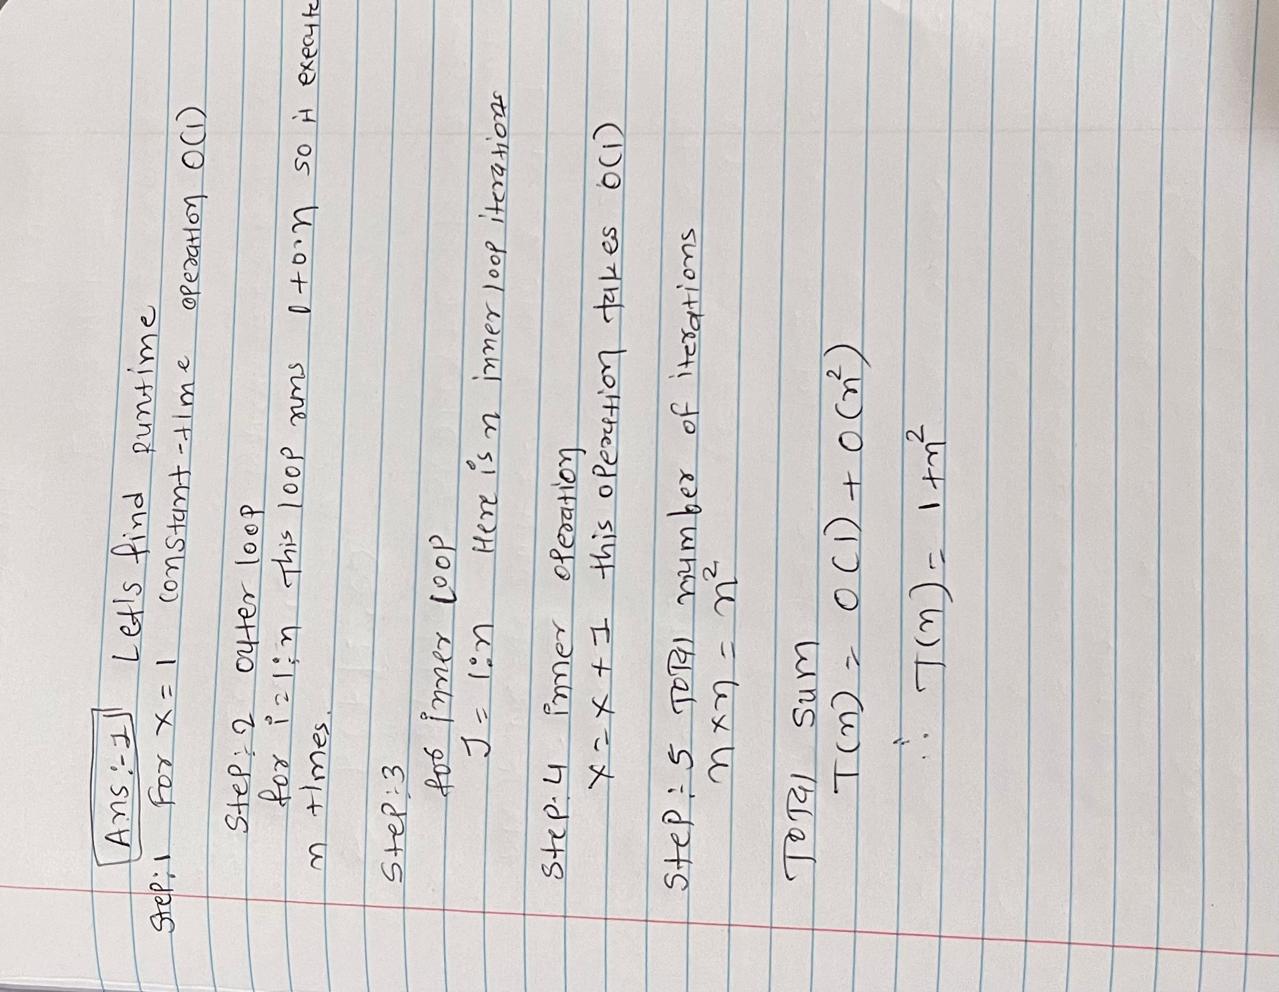 Ans:-1 Let's find Runtime
Step:1 For x = 1 constant-time operation O(1)
Step:2 outer loop
for i=1:n This loop runs 1 to n so it execute
n times.
Step:3
for inner Loop
J = 1:n Here is n inner loop iterations
Step:4 inner operation
x = x + 1 this operation takes O(1)
Step:5 Total number of iterations
n×n = n²
Total sum
T(n) = O(1) + O(n²)
∴ T(n) = 1+n²